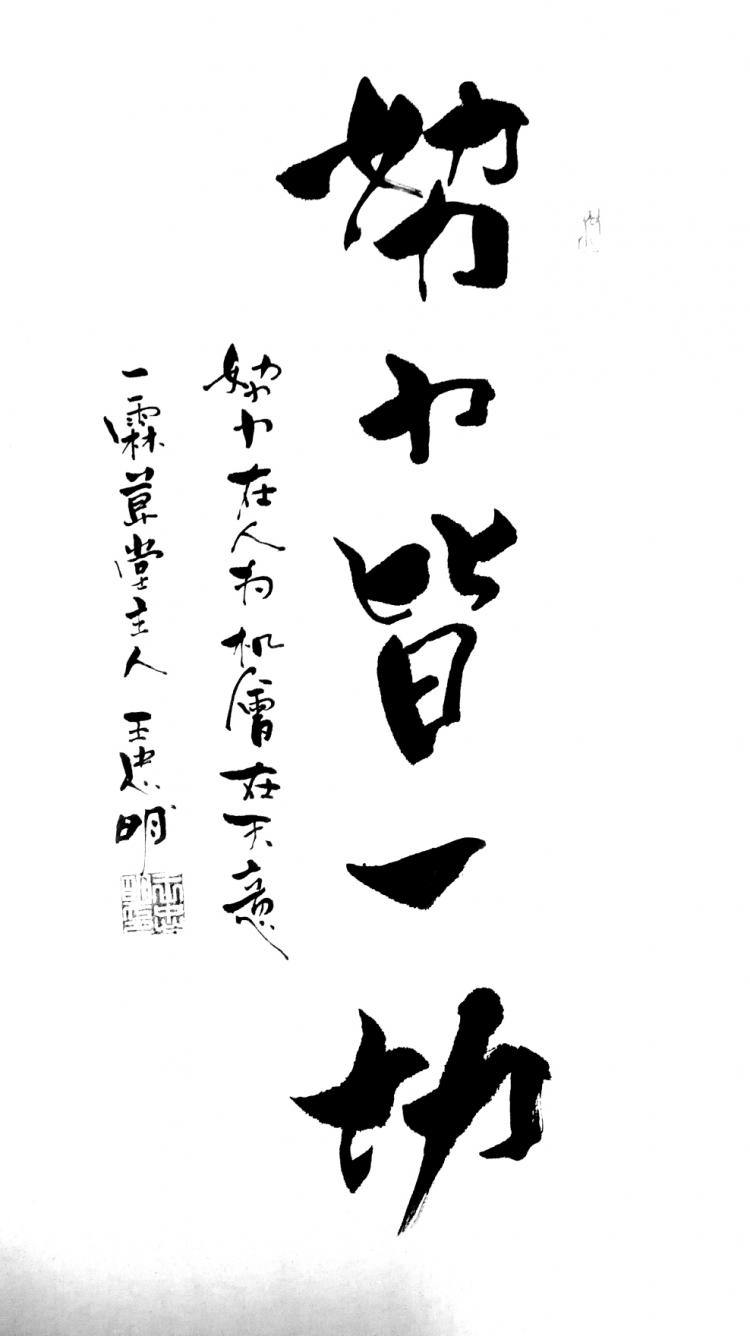 努力皆一切
努力在人为机會在天意
一霖草堂主人 王忠明